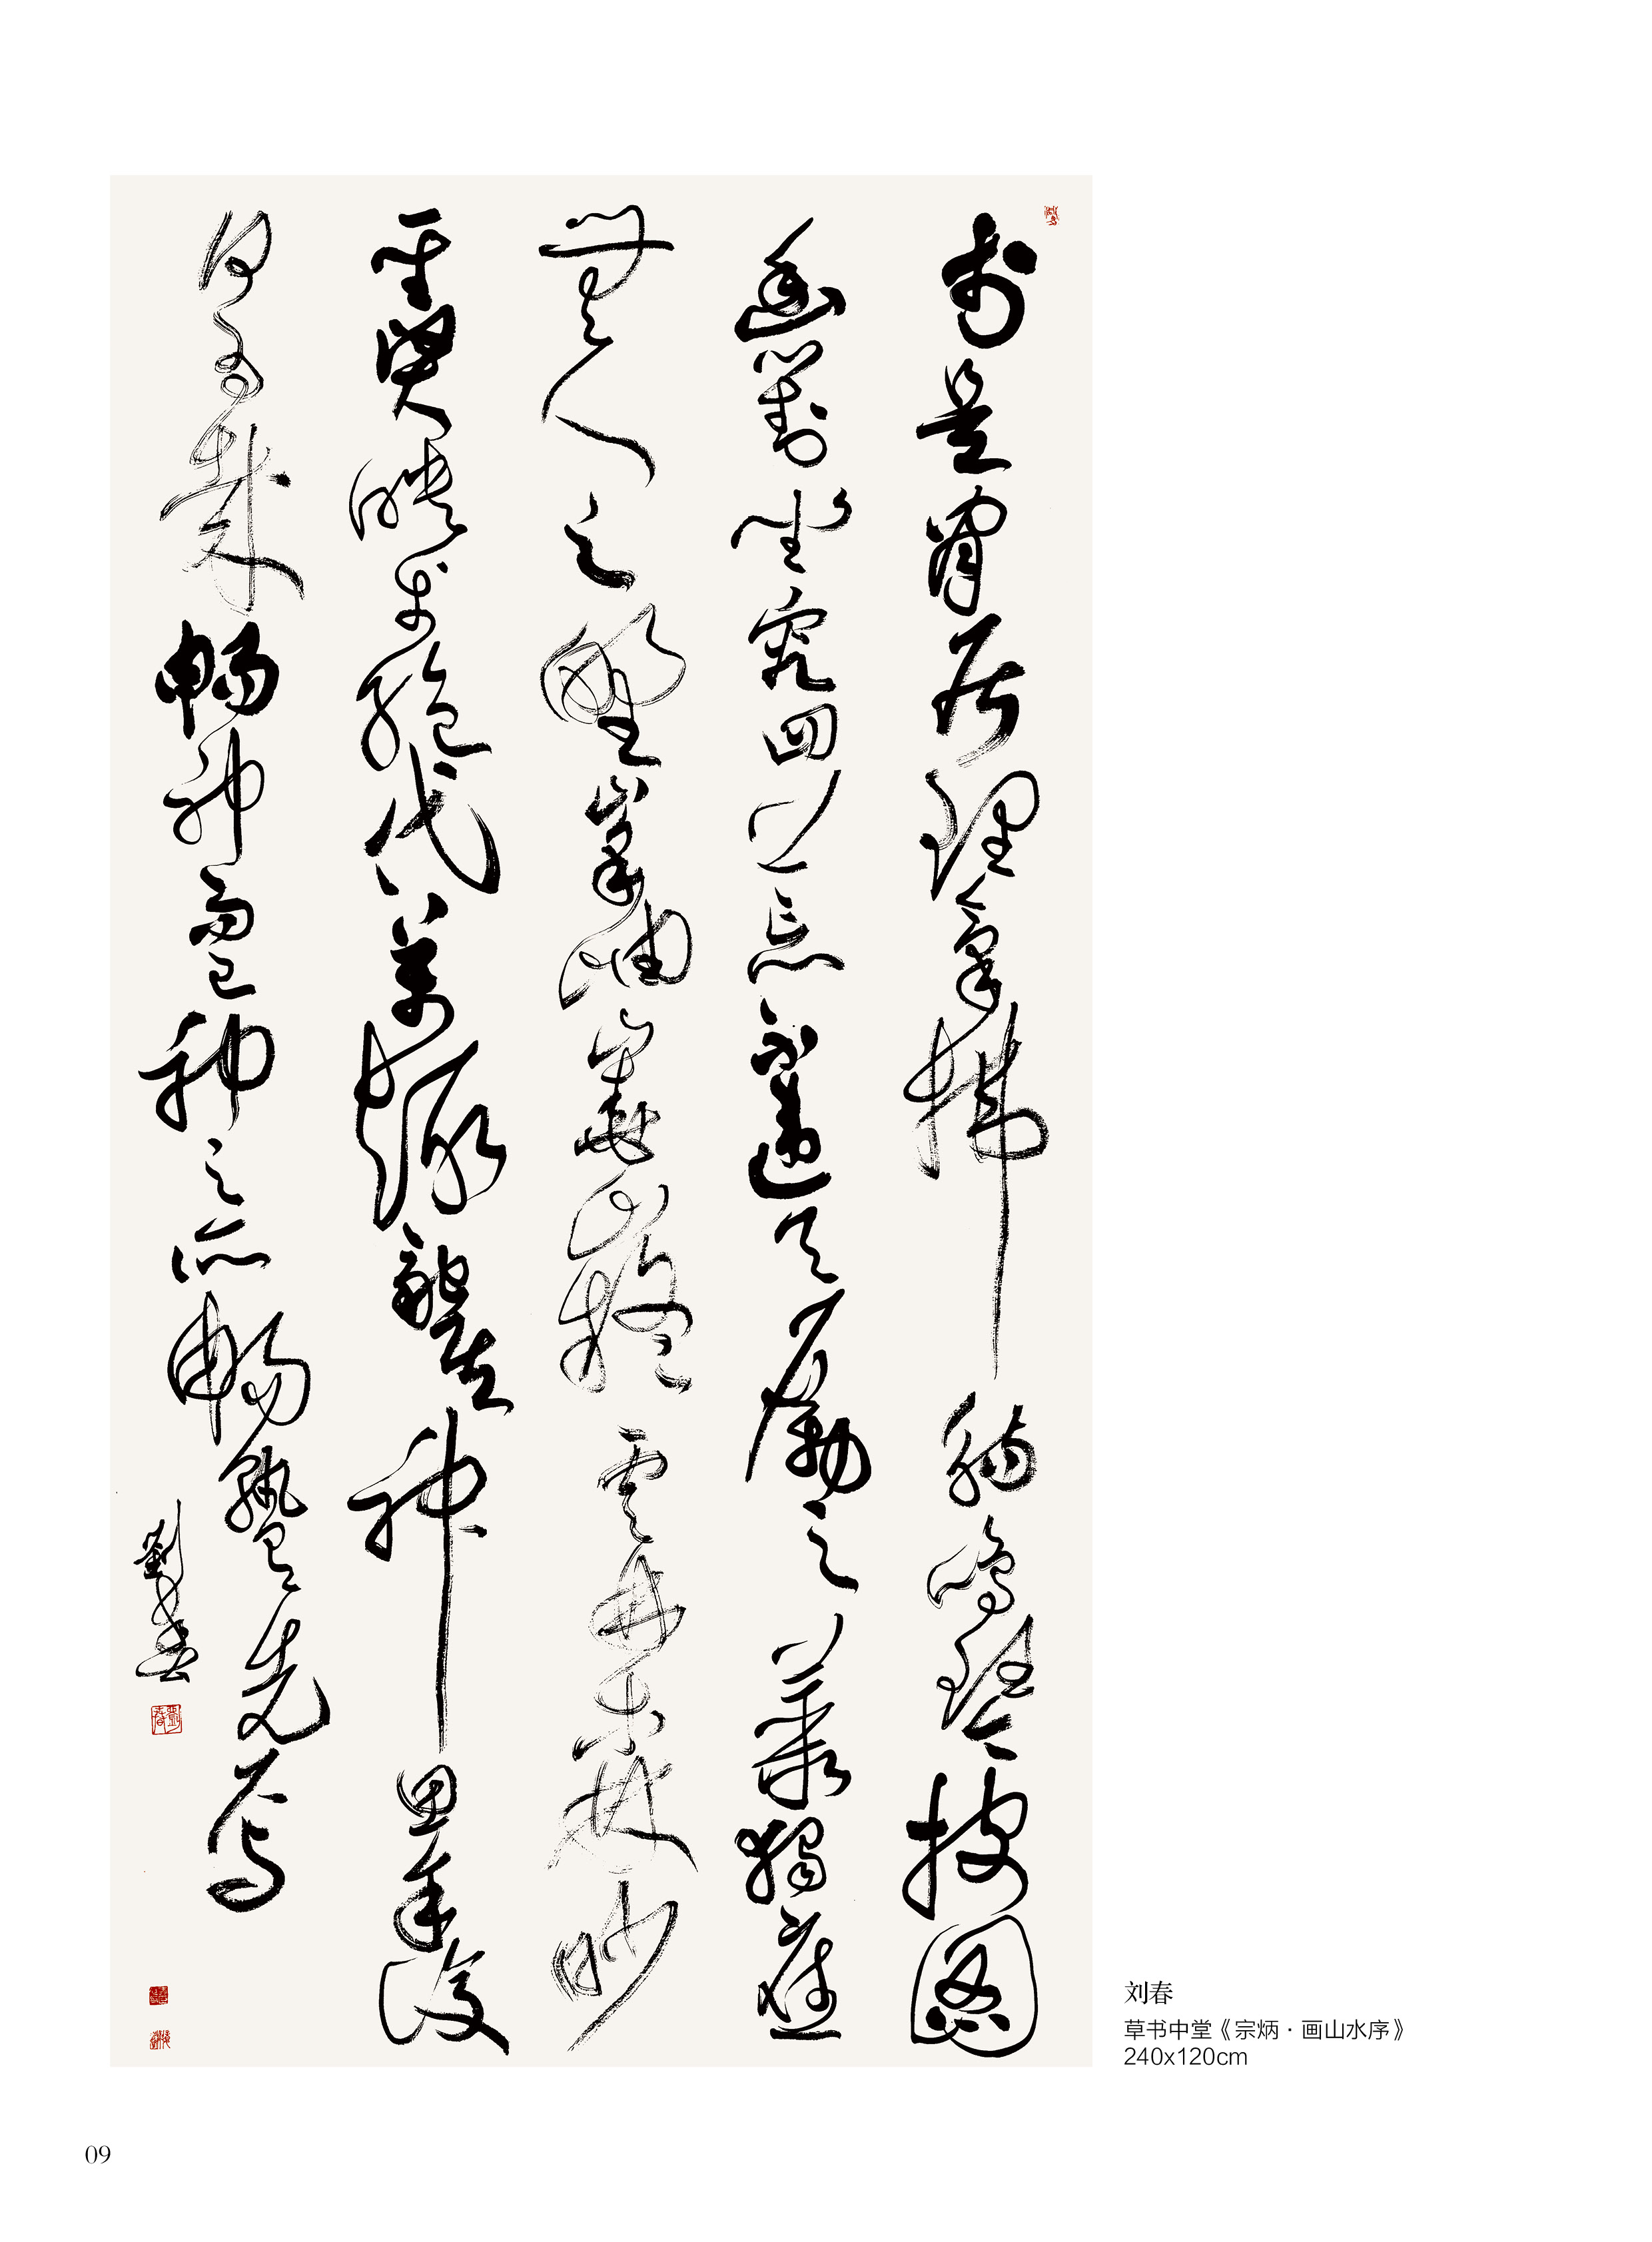 於是閒居理氣拂觴鳴琴披圖
幽對坐究四荒不違天勵之藂獨應
無人之野峯岫嶤嶷雲林森眇
聖賢暎於絕代萬趣融其神思余復
何為哉暢神而已神之所暢孰有先焉
劉春
刘春
草书中堂《宗炳·画山水序》
240x120cm
09